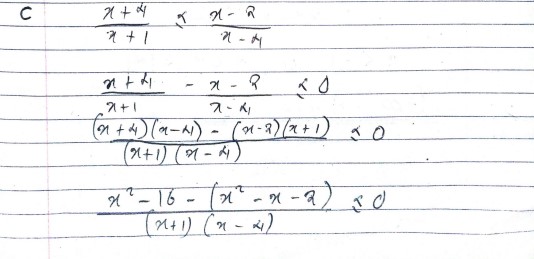 C (x+4)/(x+1) ≤ (x-2)/(x-4)
(x+4)/(x+1) - (x-2)/(x-4) ≤ 0
((x+4)(x-4) - (x-2)(x+1))/((x+1)(x-4)) ≤ 0
(x²-16-(x²-x-2))/((x+1)(x-4)) ≤ 0